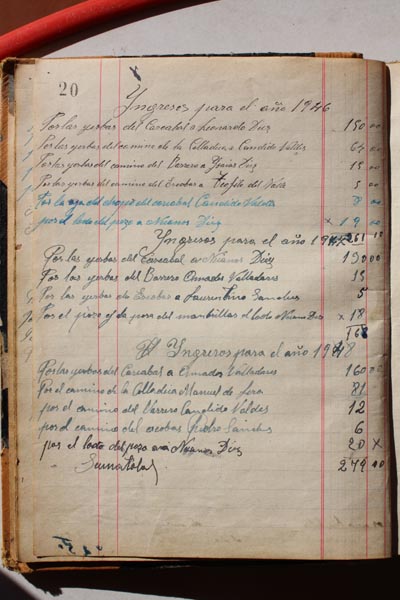 20
Yngresos para el año 1946
Por las yerbas del Carcabal a Leonardo Diez 150 00
Por las yerbas del camino de la Colladica a Candido Valdes 64 00
Por las yerbas del camino del Barrero a Diez 15 00
Por las yerbas del camino del Escobar a Teofilo del Valle 5 00
Por la del del carcabal Candido 8 00
por el lodo del pozo a Nicanor Diez x 19 00
Yngresos para el año 261
Por las yerbas del Carcabal a Nicanor Diez 130 00
Por las yerbas del Barrero Amador Valladares 15
Por las yerbas de Escobar a Laurentino Sanchez 5
Por el pozo y de pera del el lodo Diez x 18
168
Yngresos para el año 1948
Por las yerbas del Carcabas a Amador Valladares 160 00
Por el camino de la Colladica Manuel de 81
por el camino del Varrero Candido Valdes 12
por el camino del escobas Pedro Sanches 6
por el lodo del pozo a Nicanor Diez 20 x
Suma total 279 00